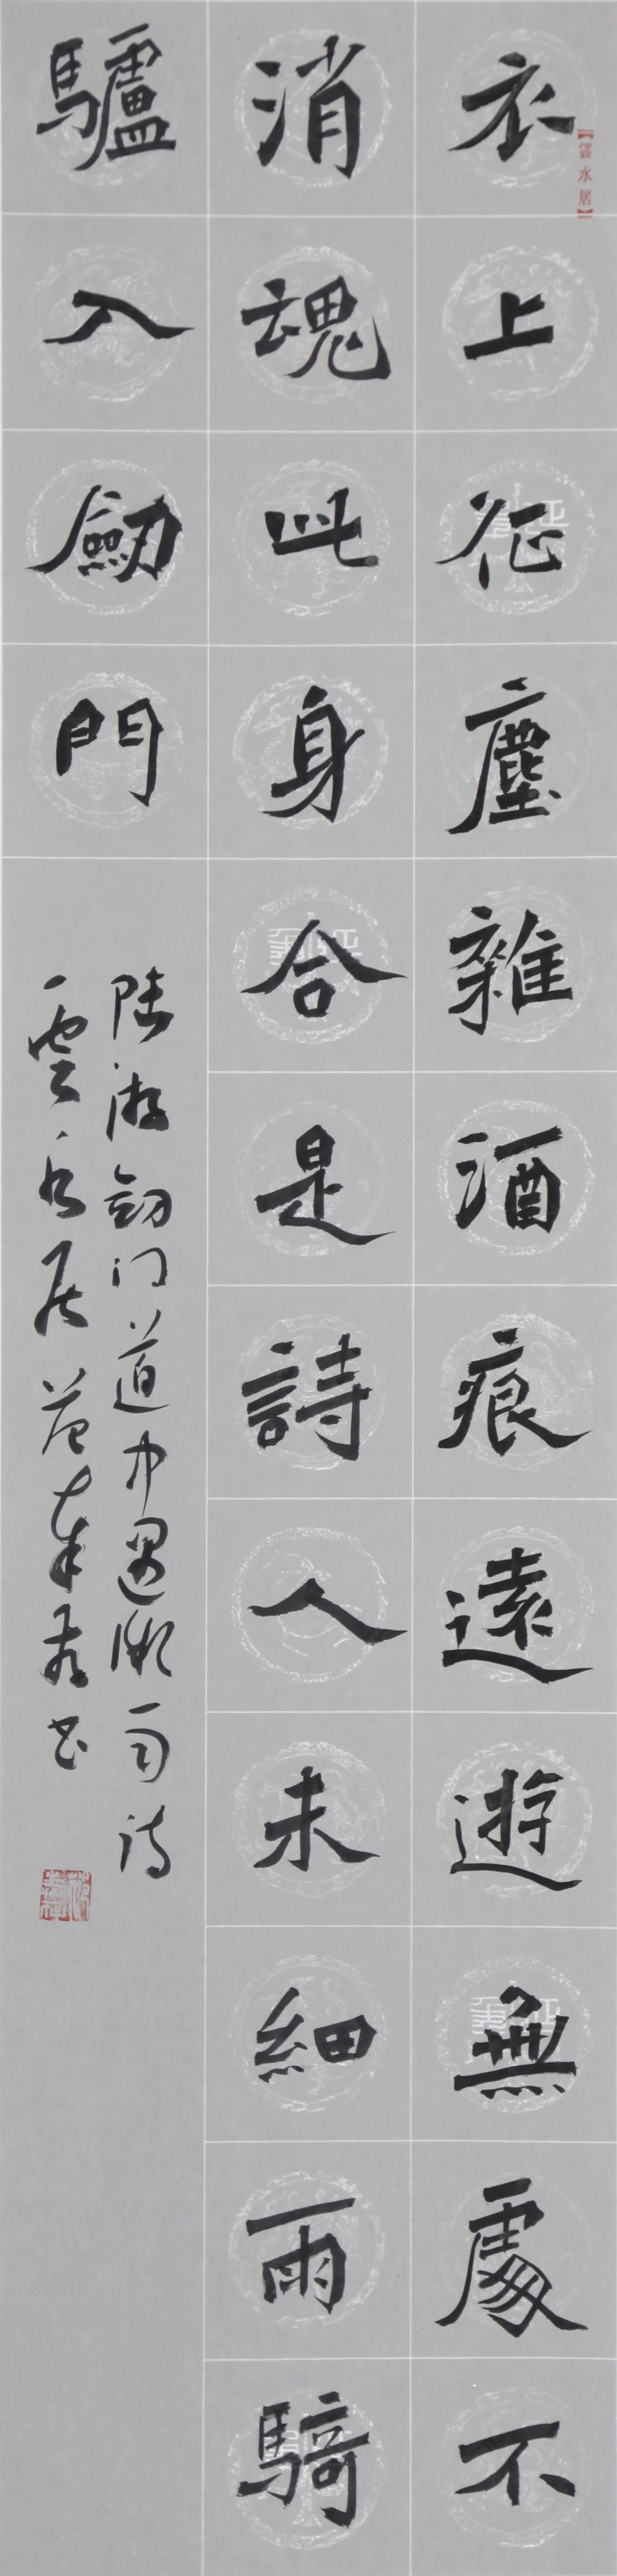 【雲水居】
衣上征塵雜酒痕遠遊無處不
消魂此身合是詩人未細雨騎
驢入劒門
陸游劒门道中遇微雨诗
雲水居书